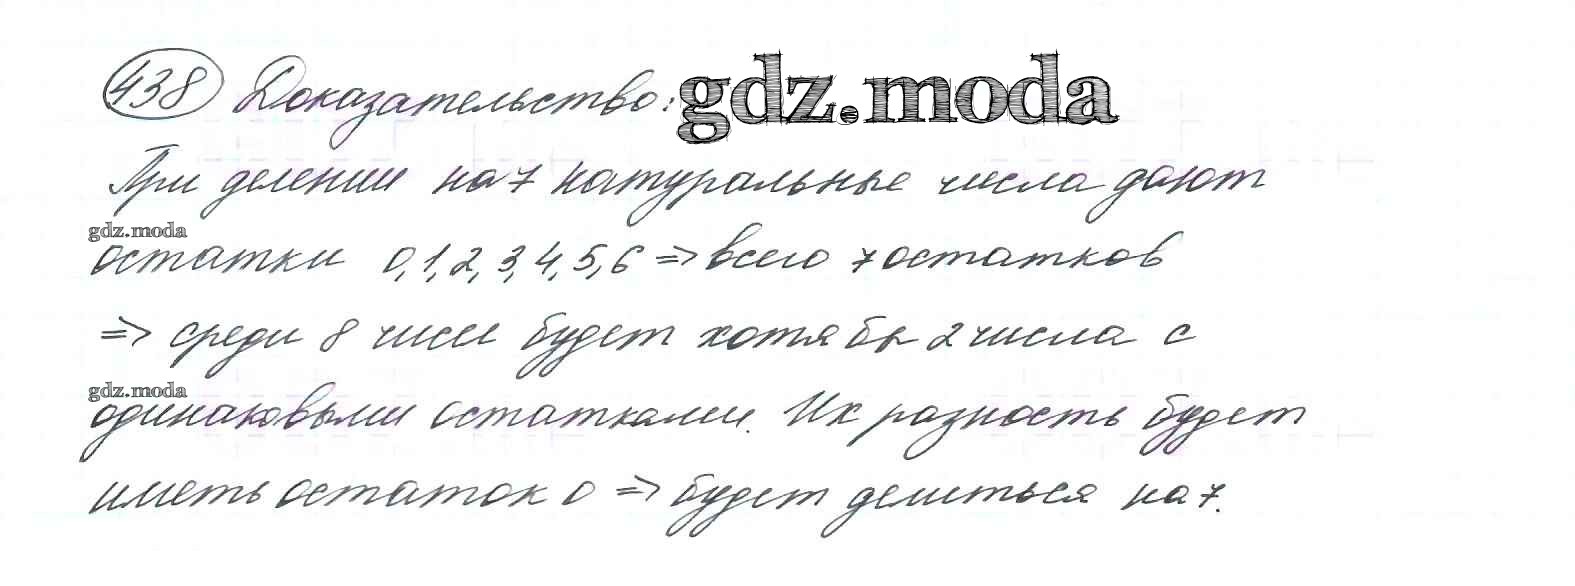 438 Доказательство: gdz.moda
При делении на 7 натуральные числа дают
gdz.moda
остатки 0,1,2,3,4,5,6 => всего 7 остатков
=> среди 8 чисел будет хотя бы 2 числа с
gdz.moda
одинаковыми остатками. Их разность будет
иметь остаток 0 => будет делиться на 7.